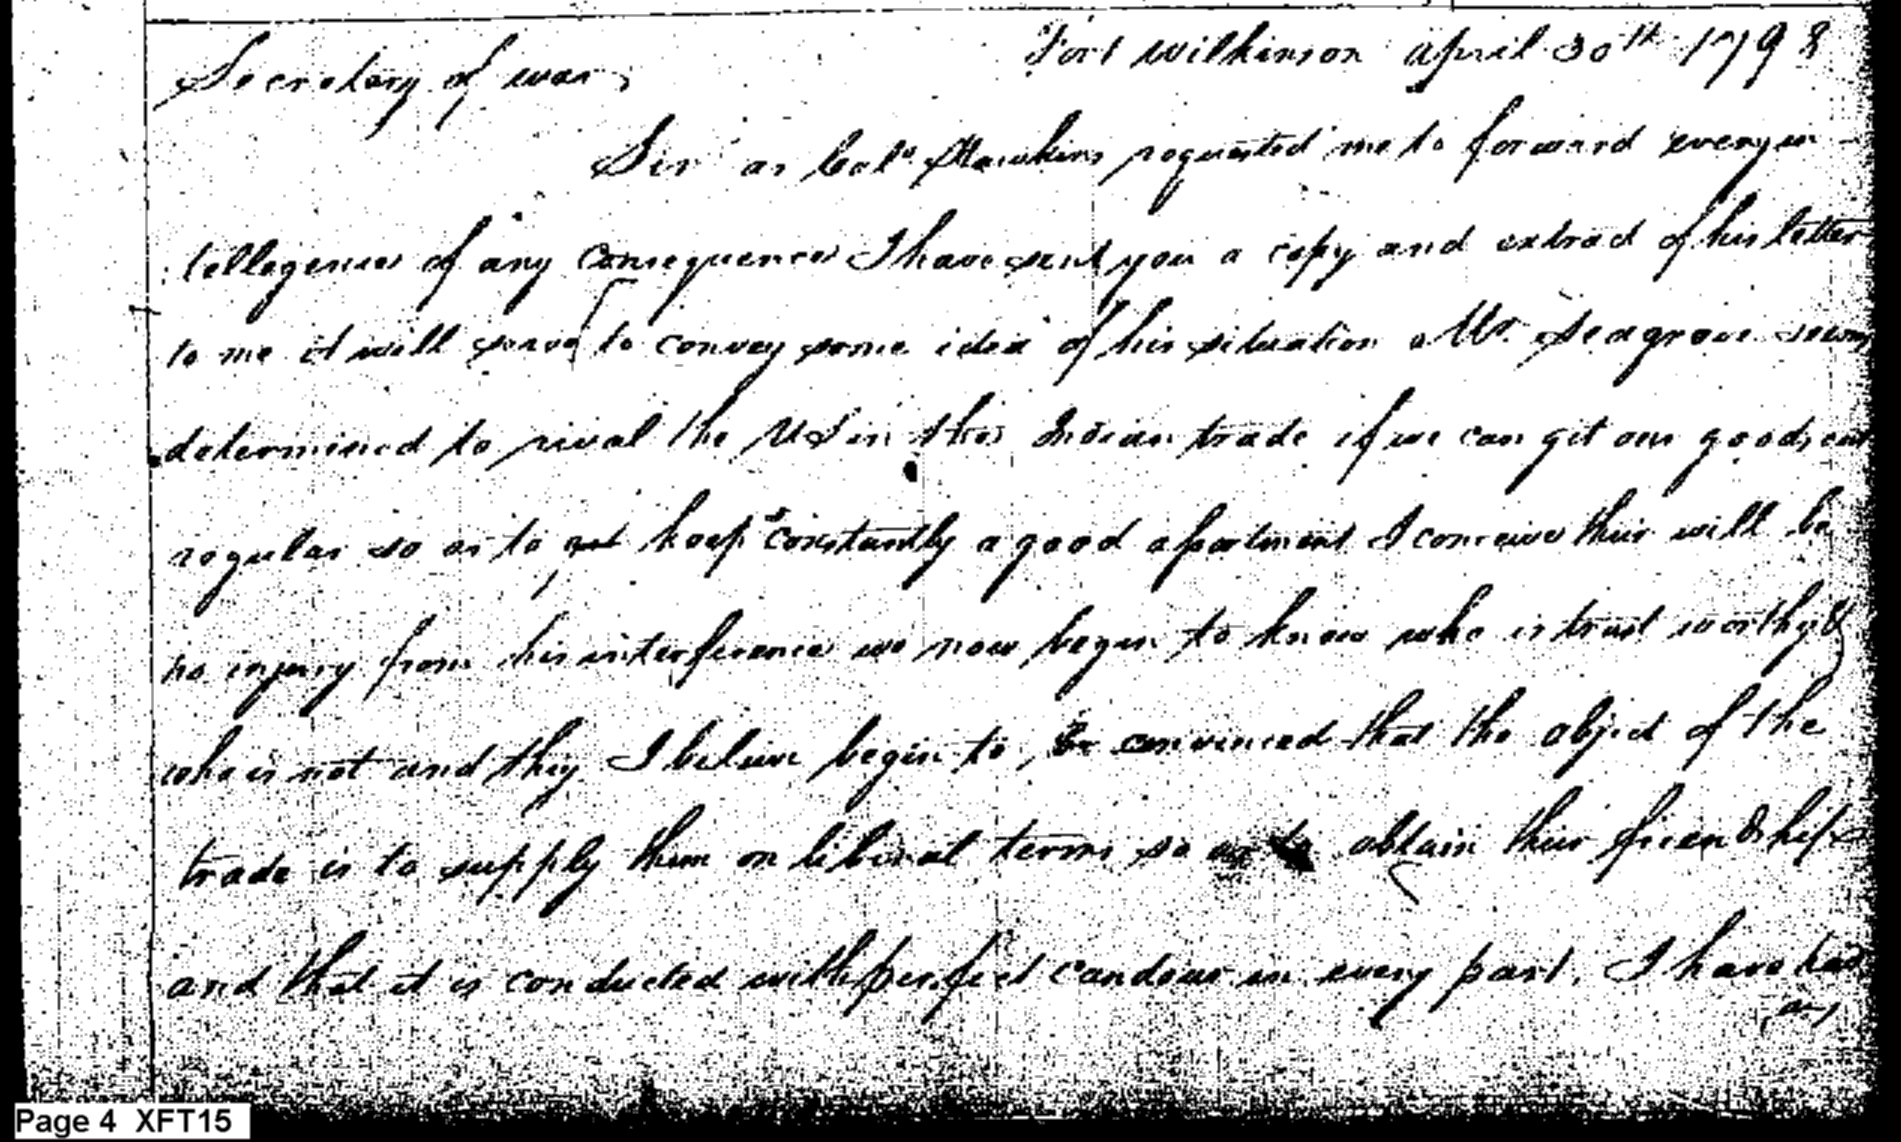 Fort Wilkinson april 30th 1798
Secretary of war,
Sir as Colo Hawkins requested me to forward every in-
tellegence of any Consequence I have sent you a copy and extract of his letter
to me it will serve to convey some idea of his situation Mr. Seagrove seems
determined to rival the US in this Indian trade if we can git our goods out
regular so as to get keep constantly a good asortment I conceive their will be
no injury from his interference we now begin to know who is trust worthy &
who is not and they I believe begin to be convinced that the object of the
trade is to supply them on liberal terms so as to obtain their friendship
and that it is conducted with perfect candour in every part. I have had
Page 4 XFT15